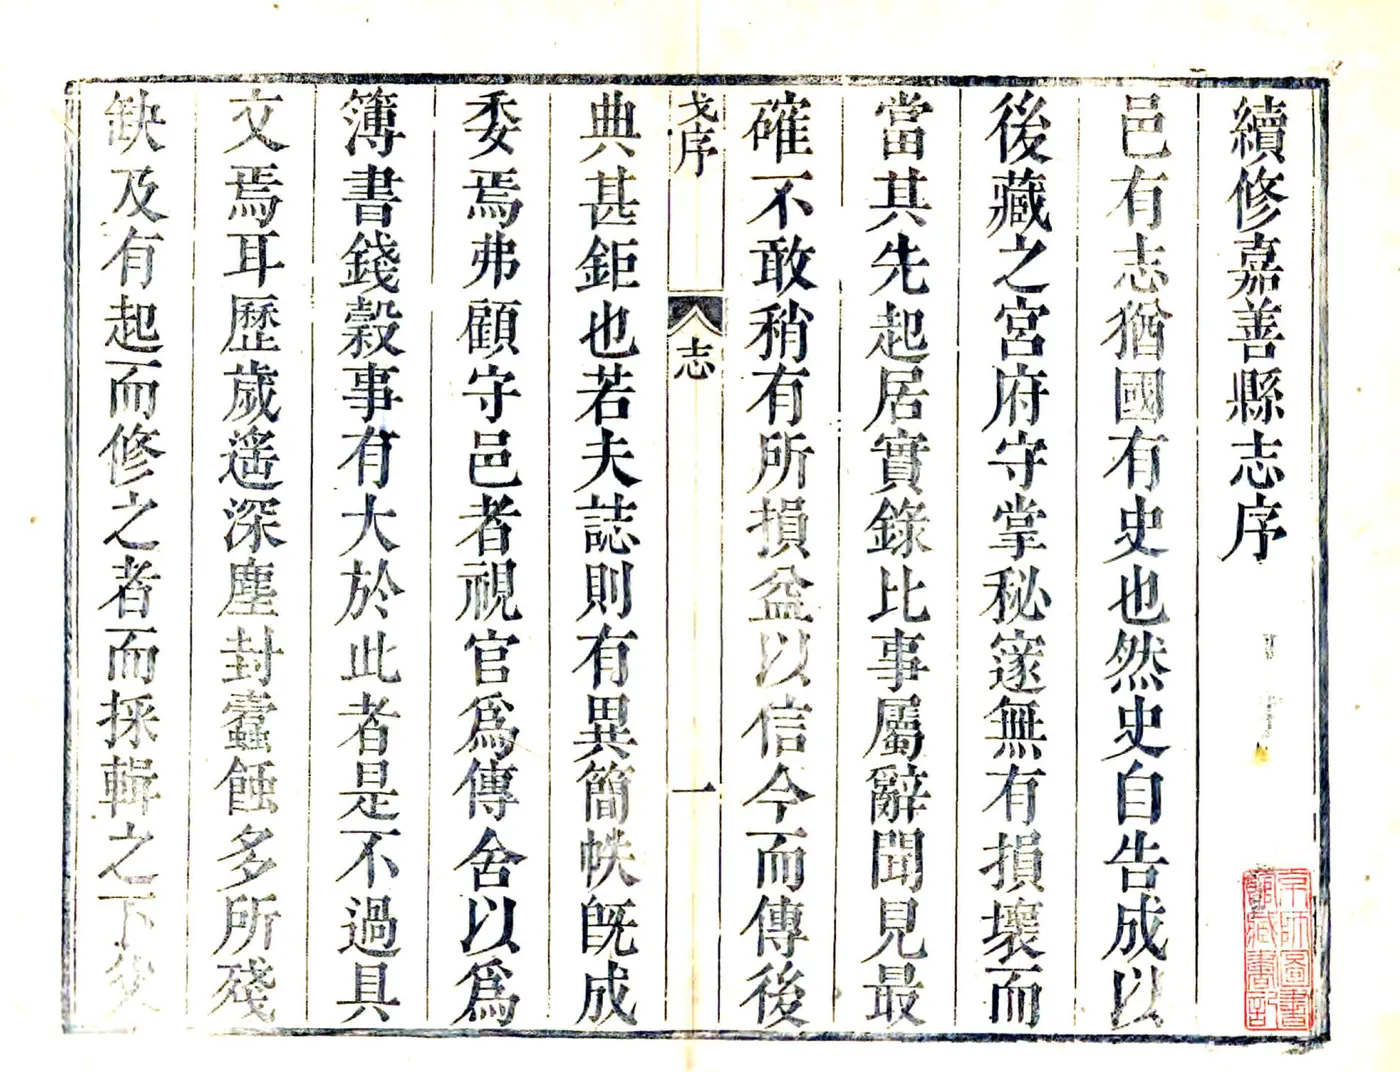 續修嘉善縣志序
邑有志猶國有史也然史自告成以
後藏之宮府守掌秘邃無有損壞而
當其先起居實錄比事屬辭聞見最
確不敢稍有所損益以信今而傳後
戈序
志
一
典甚鉅也若夫誌則有異簡帙旣成
委焉弗顧守邑者視官爲傳舍以爲
簿書錢穀事有大於此者是不過具
文焉耳歷歲遙深塵封蠹蝕多所殘
缺及有起而修之者而採輯之下後
京師圖書
館藏書記